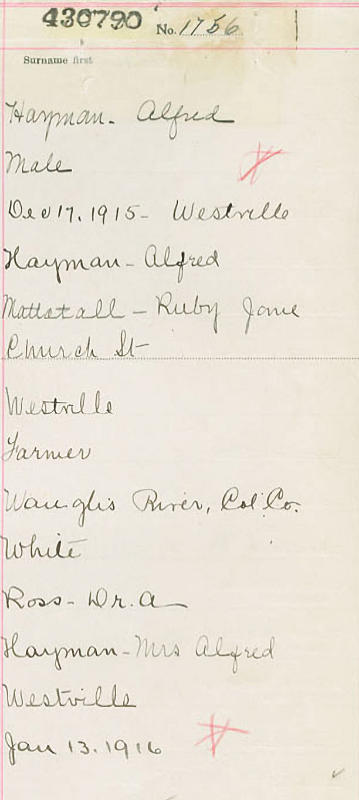 430790 No. 1756
Surname first
Hayman - Alfred
Male
Dec 17. 1915 - Westville
Hayman - Alfred
Mattatall - Ruby Jane
Church St
Westville
Farmer
Waughs River, Col. Co.
White
Ross - Dr. A
Hayman - Mrs Alfred
Westville
Jan 13. 1916